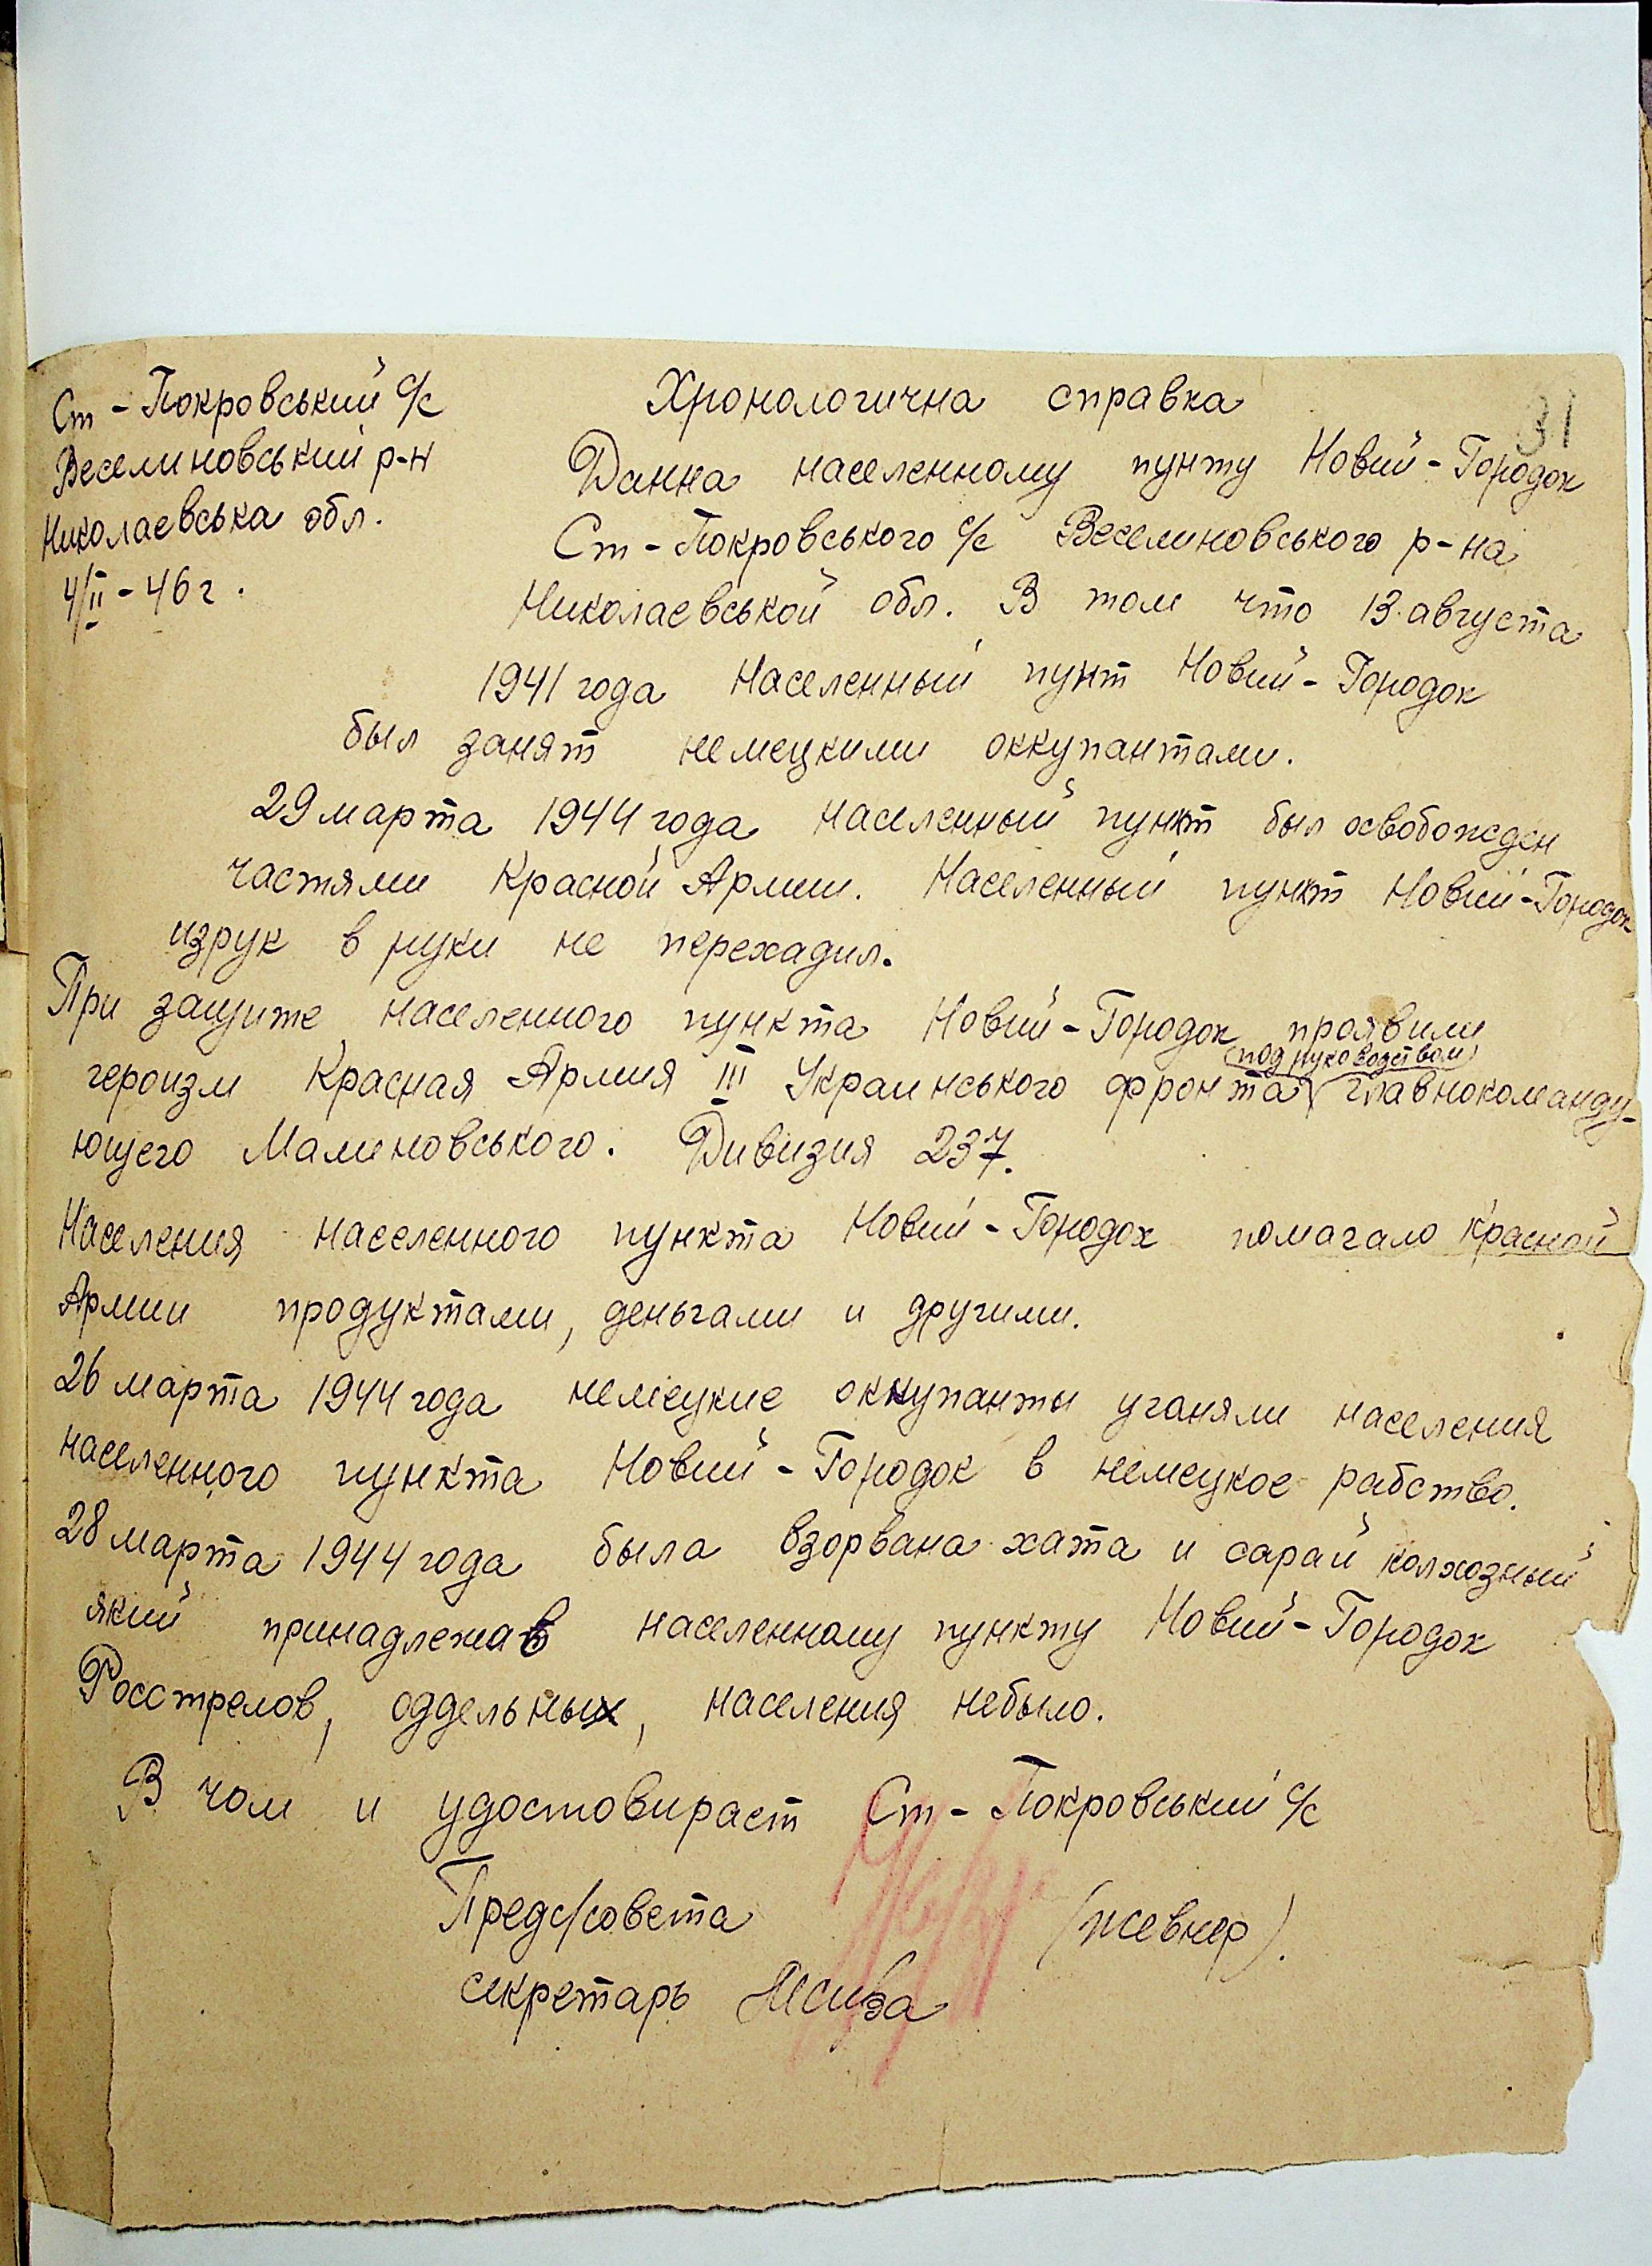 31
Ст-Покровський с/с
Веселиновський р-н
Николаевська обл.
4/II-46 г.
Хронологична справка
Данна населенному пунту Новий-Городок
Ст-Покровського с/с Веселиновського р-на
Николаевськой обл. В том что 13 августа
1941 года Населенный пункт Новий-Городок
был занят немецкими оккупантами.
29 марта 1944 года населенный пункт был освобожден
частями Красной Армии. Населенный пункт Новий-Городок
изрук в руки не перехадил.
При защите населенного пункта Новий-Городок проявили
(под руководством)
героизм Красная Армия III Украинського фронта главнокоманду-
ющего Малиновського. Дивизия 237.
Населения населенного пункта Новий-Городок помагало Красной
Армии продуктами, деньгами и другими.
26 марта 1944 года немецкие оккупанты уганяли населения
населенного пункта Новий-Городок в немецкое рабство.
28 марта 1944 года была взорвана хата и сарай колхозный
який принадлежав населенному пункту Новий-Городок
Росстрелов, оддельных, населения небыло.
В чом и удостовираєт Ст-Покровський с/с
Предс/совета
секретарь